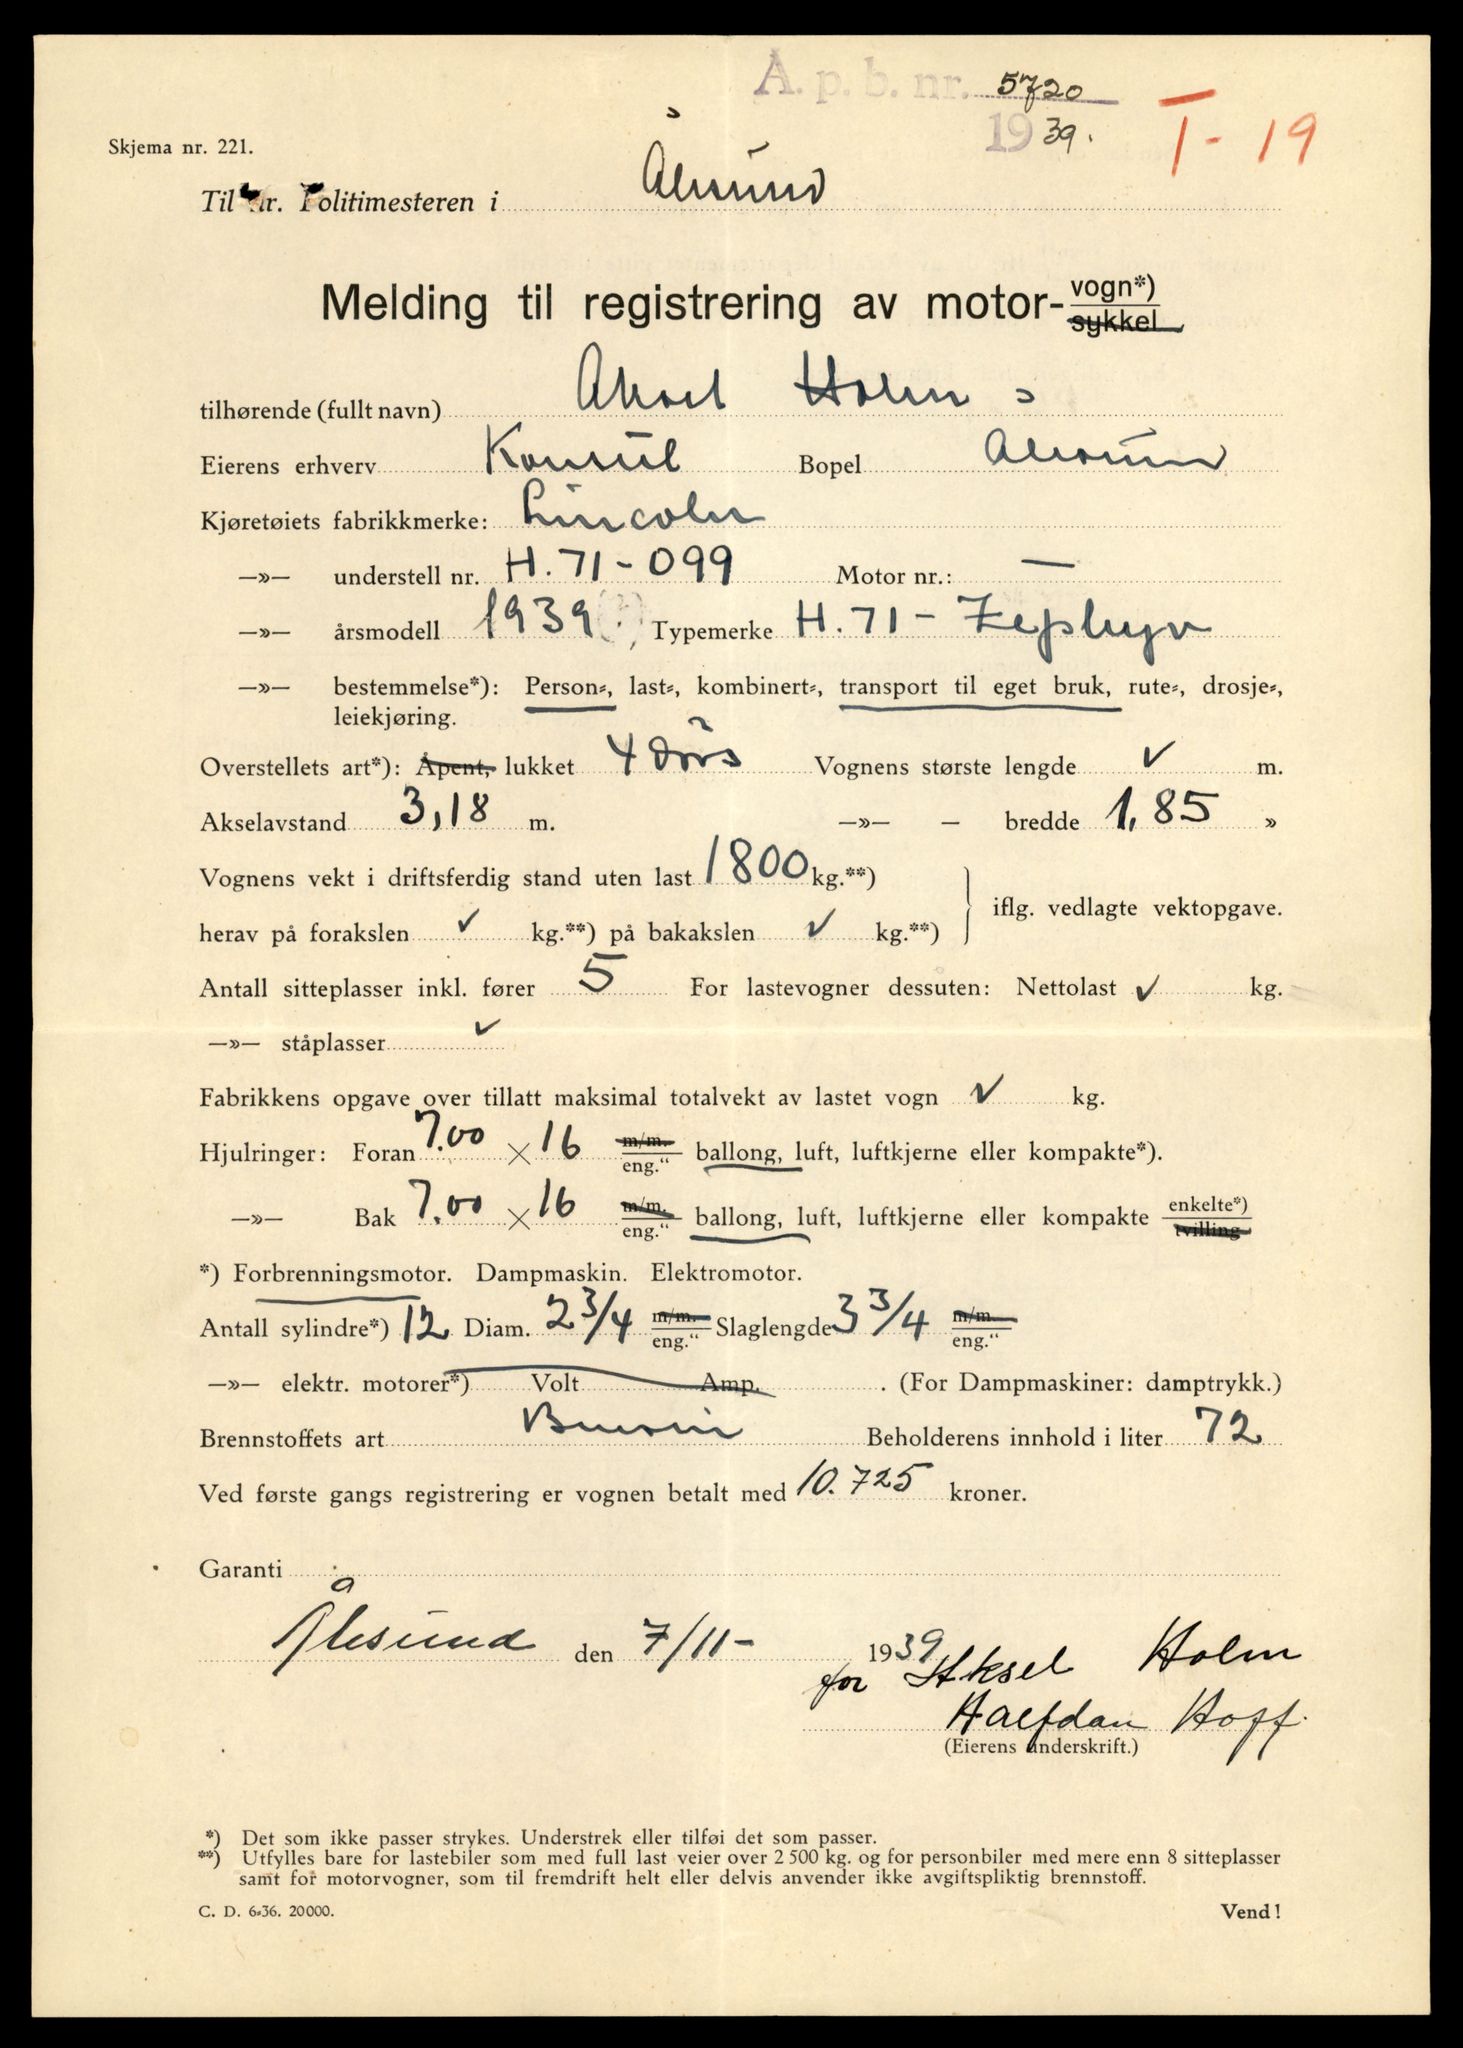 A. p. b. nr. 5720
1939.
T - 19
Skjema nr. 221.
Til hr. Politimesteren i Ålesund
Melding til registrering av motor- vogn*)
sykkel
tilhørende (fullt navn) Aksel Holm
Eierens erhverv Konsul Bopel Ålesund
Kjøretøiets fabrikkmerke: Lincoln
—»— understell nr. H. 71 - 099 Motor nr.: —
—»— årsmodell 1939 (?) Typemerke H. 71 - Zephyr
—»— bestemmelse*): Person-, last-, kombinert-, transport til eget bruk, rute-, drosje-,
leiekjøring.
Overstellets art*): Åpent, lukket 4 dørs Vognens største lengde ✓ m.
Akselavstand 3,18 m. —»— — bredde 1,85 »
Vognens vekt i driftsferdig stand uten last 1800 kg.**)
herav på forakslen ✓ kg.**) på bakakslen ✓ kg.**)
iflg. vedlagte vektopgave.
Antall sitteplasser inkl. fører 5 For lastevogner dessuten: Nettolast ✓ kg.
—»— ståplasser ✓
Fabrikkens opgave over tillatt maksimal totalvekt av lastet vogn ✓ kg.
Hjulringer: Foran 7.00 × 16 m/m. eng.“ ballong, luft, luftkjerne eller kompakte*).
—»— Bak 7.00 × 16 m/m. eng.“ ballong, luft, luftkjerne eller kompakte enkelte*) tvilling
*) Forbrenningsmotor. Dampmaskin. Elektromotor.
Antall sylindre*) 12 Diam. 2 3/4 m/m. eng.“ Slaglengde 3 3/4 m/m. eng.“
—»— elektr. motorer*) Volt Amp. . (For Dampmaskiner: damptrykk.)
Brennstoffets art Bensin Beholderens innhold i liter 72
Ved første gangs registrering er vognen betalt med 10.725 kroner.
Garanti
Ålesund den 7/11- 1939
for Aksel Holm
Halfdan Hoff.
(Eierens underskrift.)
*) Det som ikke passer strykes. Understrek eller tilføi det som passer.
**) Utfylles bare for lastebiler som med full last veier over 2 500 kg. og for personbiler med mere enn 8 sitteplasser
samt for motorvogner, som til fremdrift helt eller delvis anvender ikke avgiftspliktig brennstoff.
C. D. 6-36. 20000.
Vend!